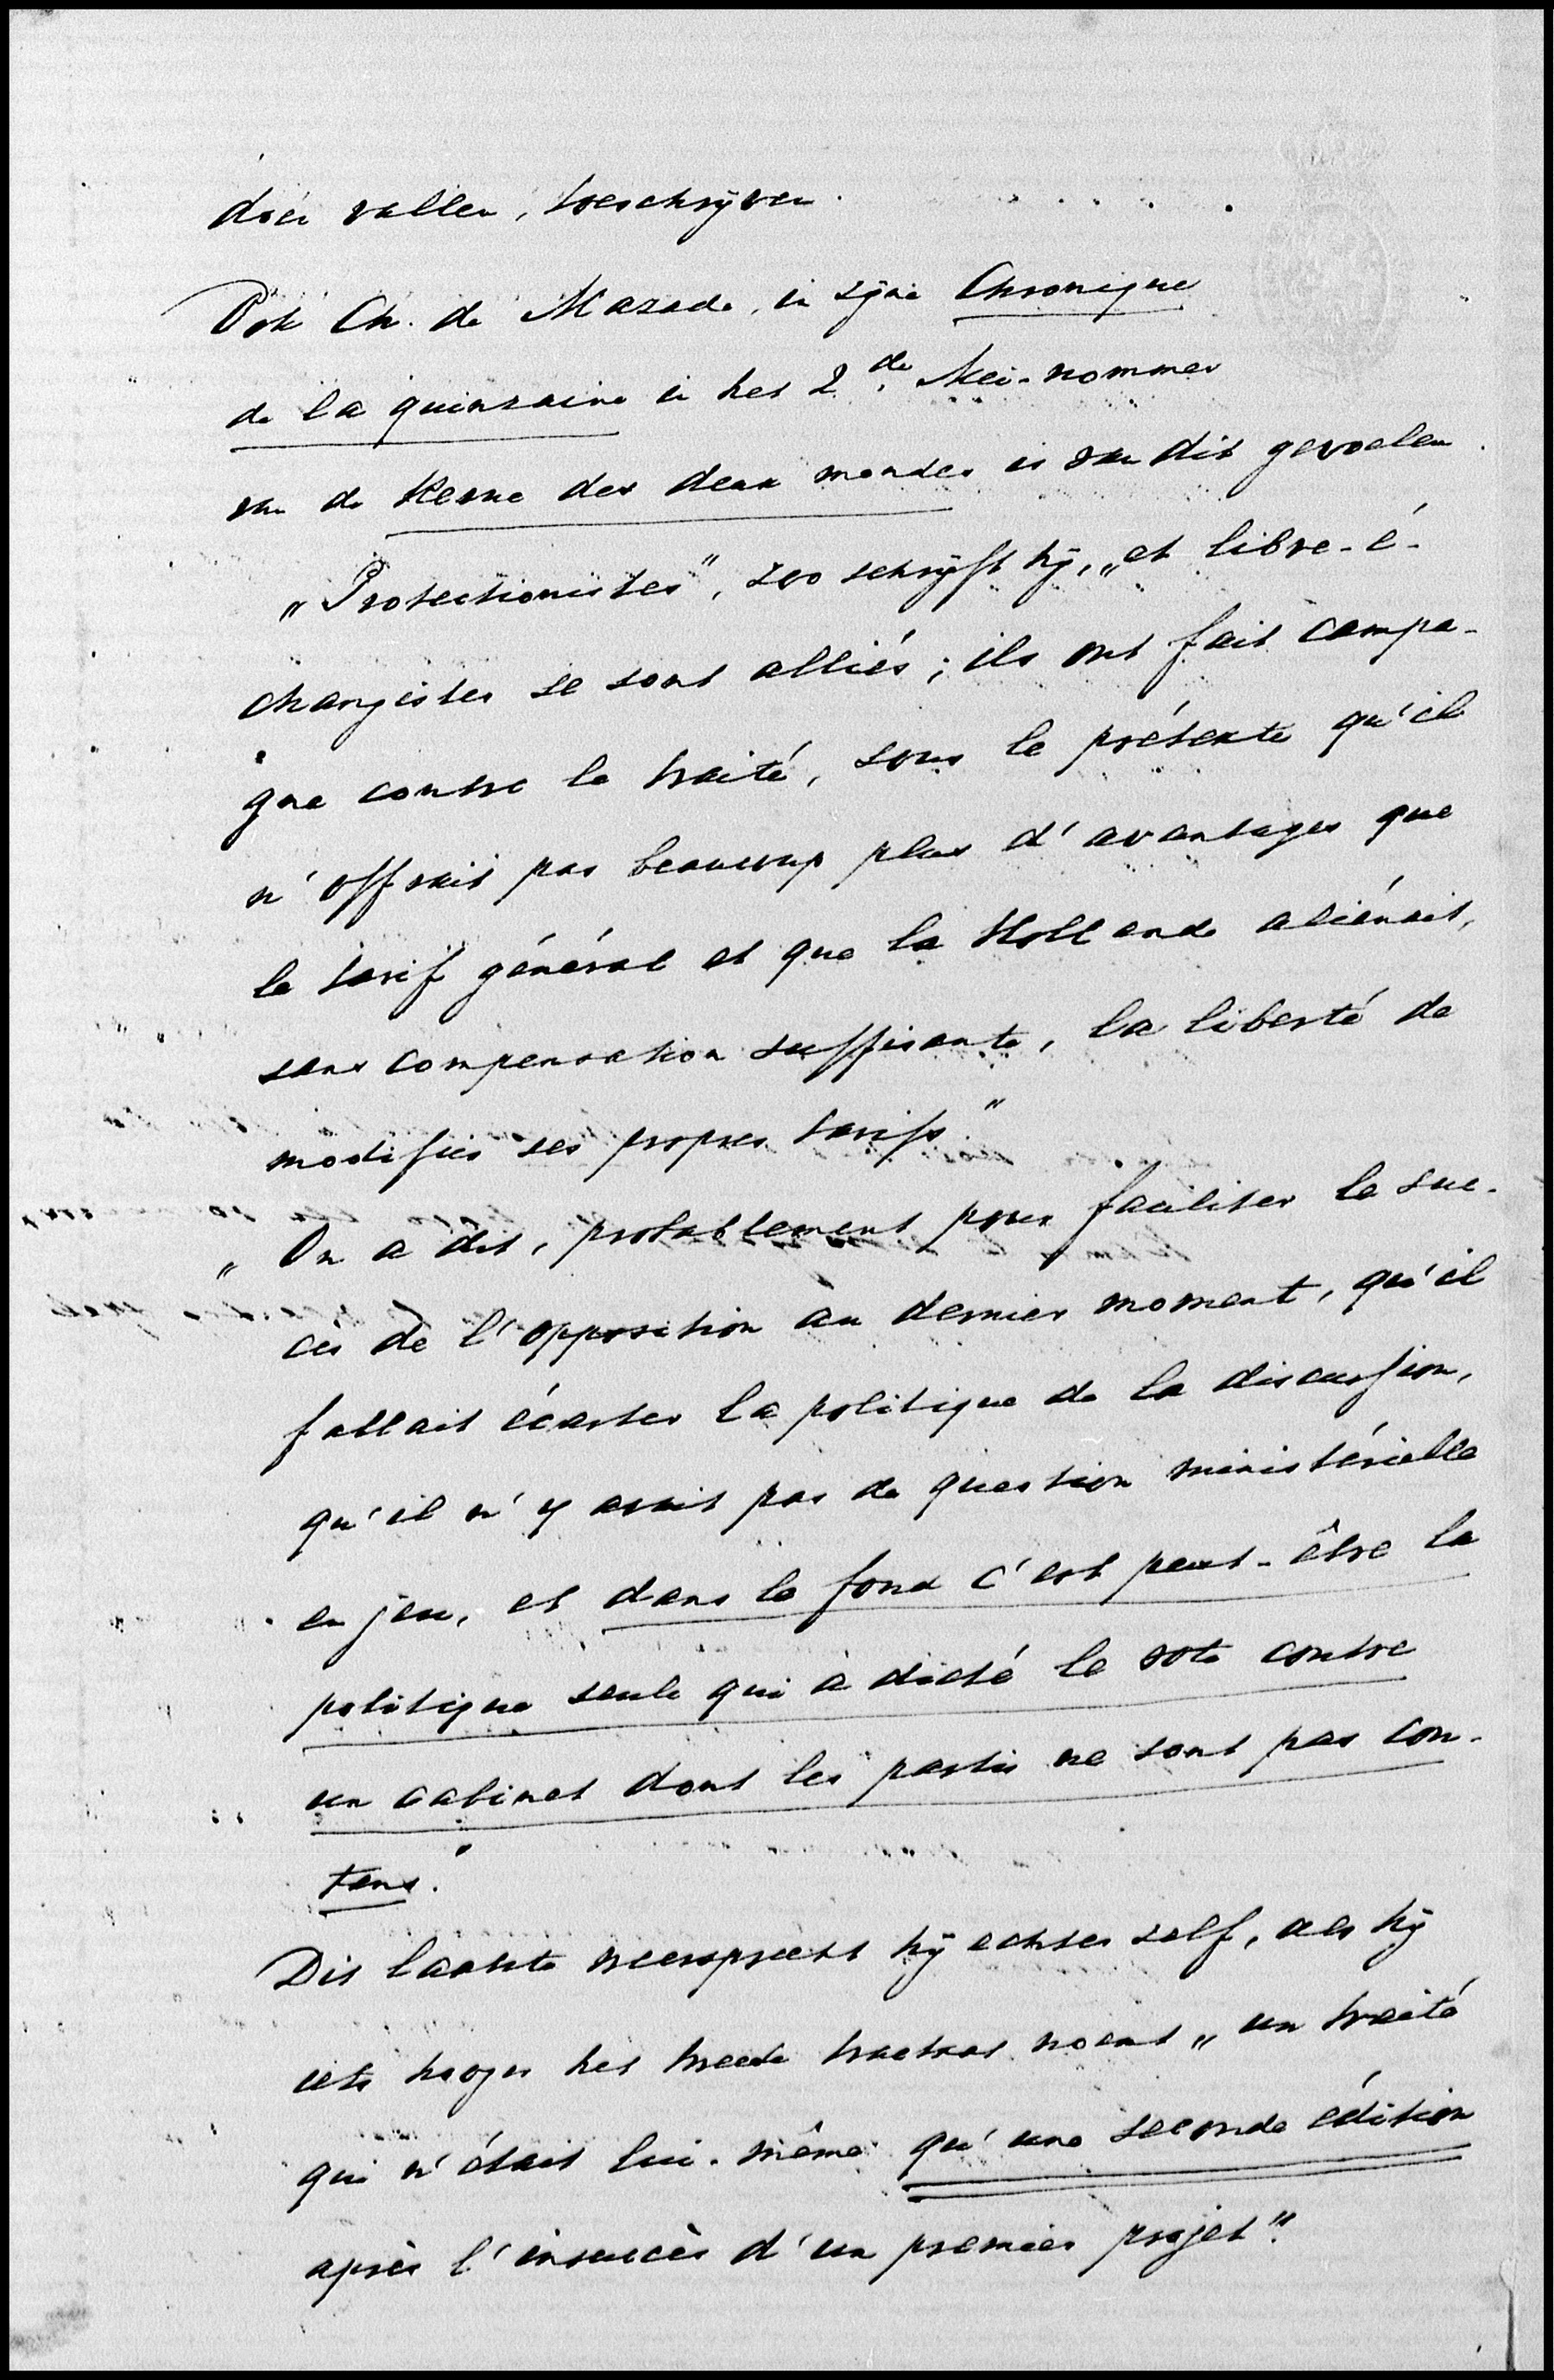 doen vallen, toeschrijven.
Ook Ch. de Mazade, in zijne Chronique
de la quinzaine in het 2de Mei-nommer
van de Revue des deux mondes is van dit gevoelen.
„Protectionistes", zoo schrijft hij, „et libre-é-
changistes se sont alliés; ils ont fait campa-
gne contre le traité, sous le prétexte qu'il
n'offrait pas beaucoup plus d'avantages que
le tarif général et que la Hollande aliénait,
sans compensation suffisante, la liberté de
modifier ses propres tarifs."
„On a dit, probablement pour faciliter le suc-
cès de l'opposition au dernier moment, qu'il
fallait écarter la politique de la discussion,
qu'il n'y avait pas de question ministérielle
en jeu, et dans le fond c'est peut-être la
politique seule qui a dicté le vote contre
un cabinet dont les partis ne sont pas con-
tens."
Dit laatste weerspreekt hij echter zelf, als hij
iets hooger het tweede tractaat noemt „un traité
qui n'était lui-même qu'une seconde édition
après l'insuccès d'un premier projet".